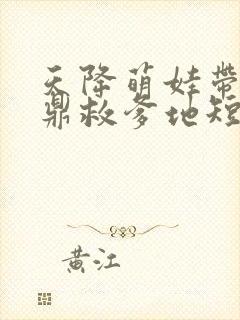 天降萌娃帶
鼎救爹地短
黄江